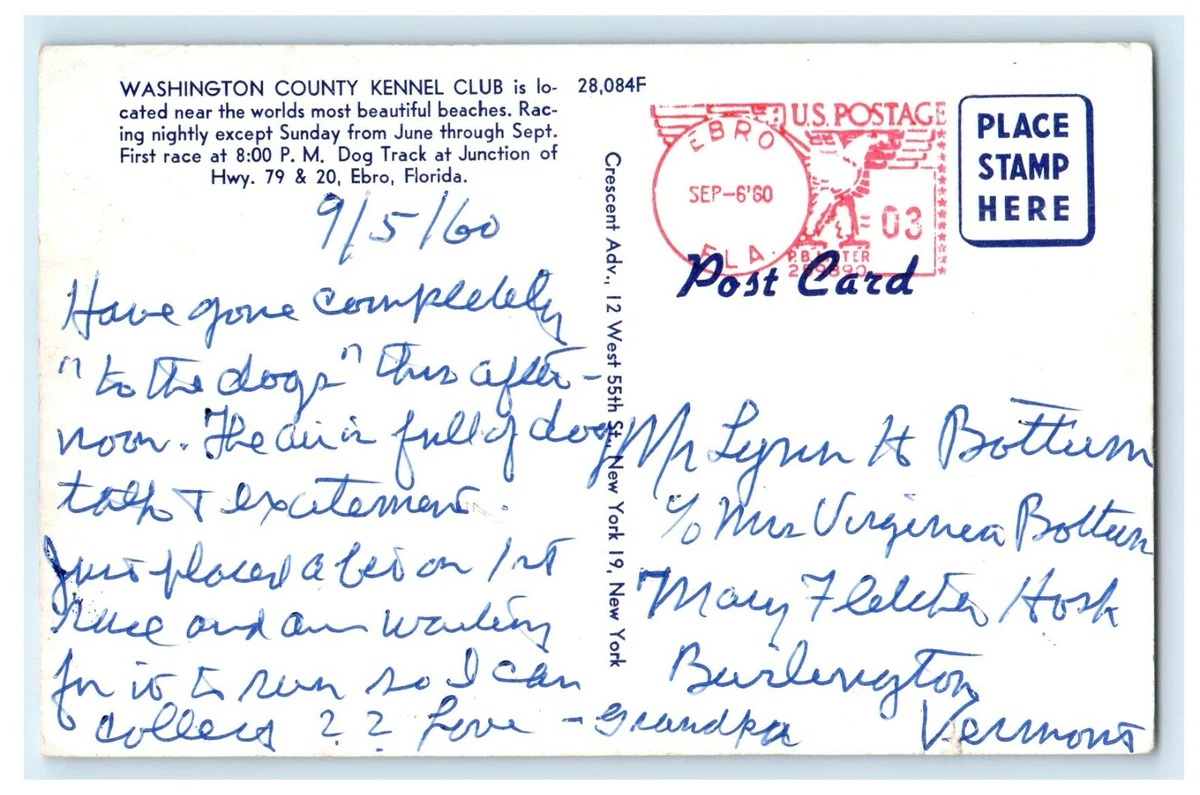 WASHINGTON COUNTY KENNEL CLUB is lo-
cated near the worlds most beautiful beaches. Rac-
ing nightly except Sunday from June through Sept.
First race at 8:00 P. M. Dog Track at Junction of
Hwy. 79 & 20, Ebro, Florida.
28,084F
9/5/60
Have gone completely
"to the dogs" this after-
noon. The air is full of dog
talk & excitement.
Just placed a bet on 1st
race and am waiting
for it to run so I can
collect ? ? Love - Grandpa
Crescent Adv., 12 West 55th St., New York 19, New York
EBRO
SEP-6'60
FLA.
U.S. POSTAGE
03
P.B. METER
PLACE
STAMP
HERE
Post Card
Mr Lynn H Bottum
c/o Mrs Virginia Bottum
Mary Fletcher Hosp
Burlington
Vermont